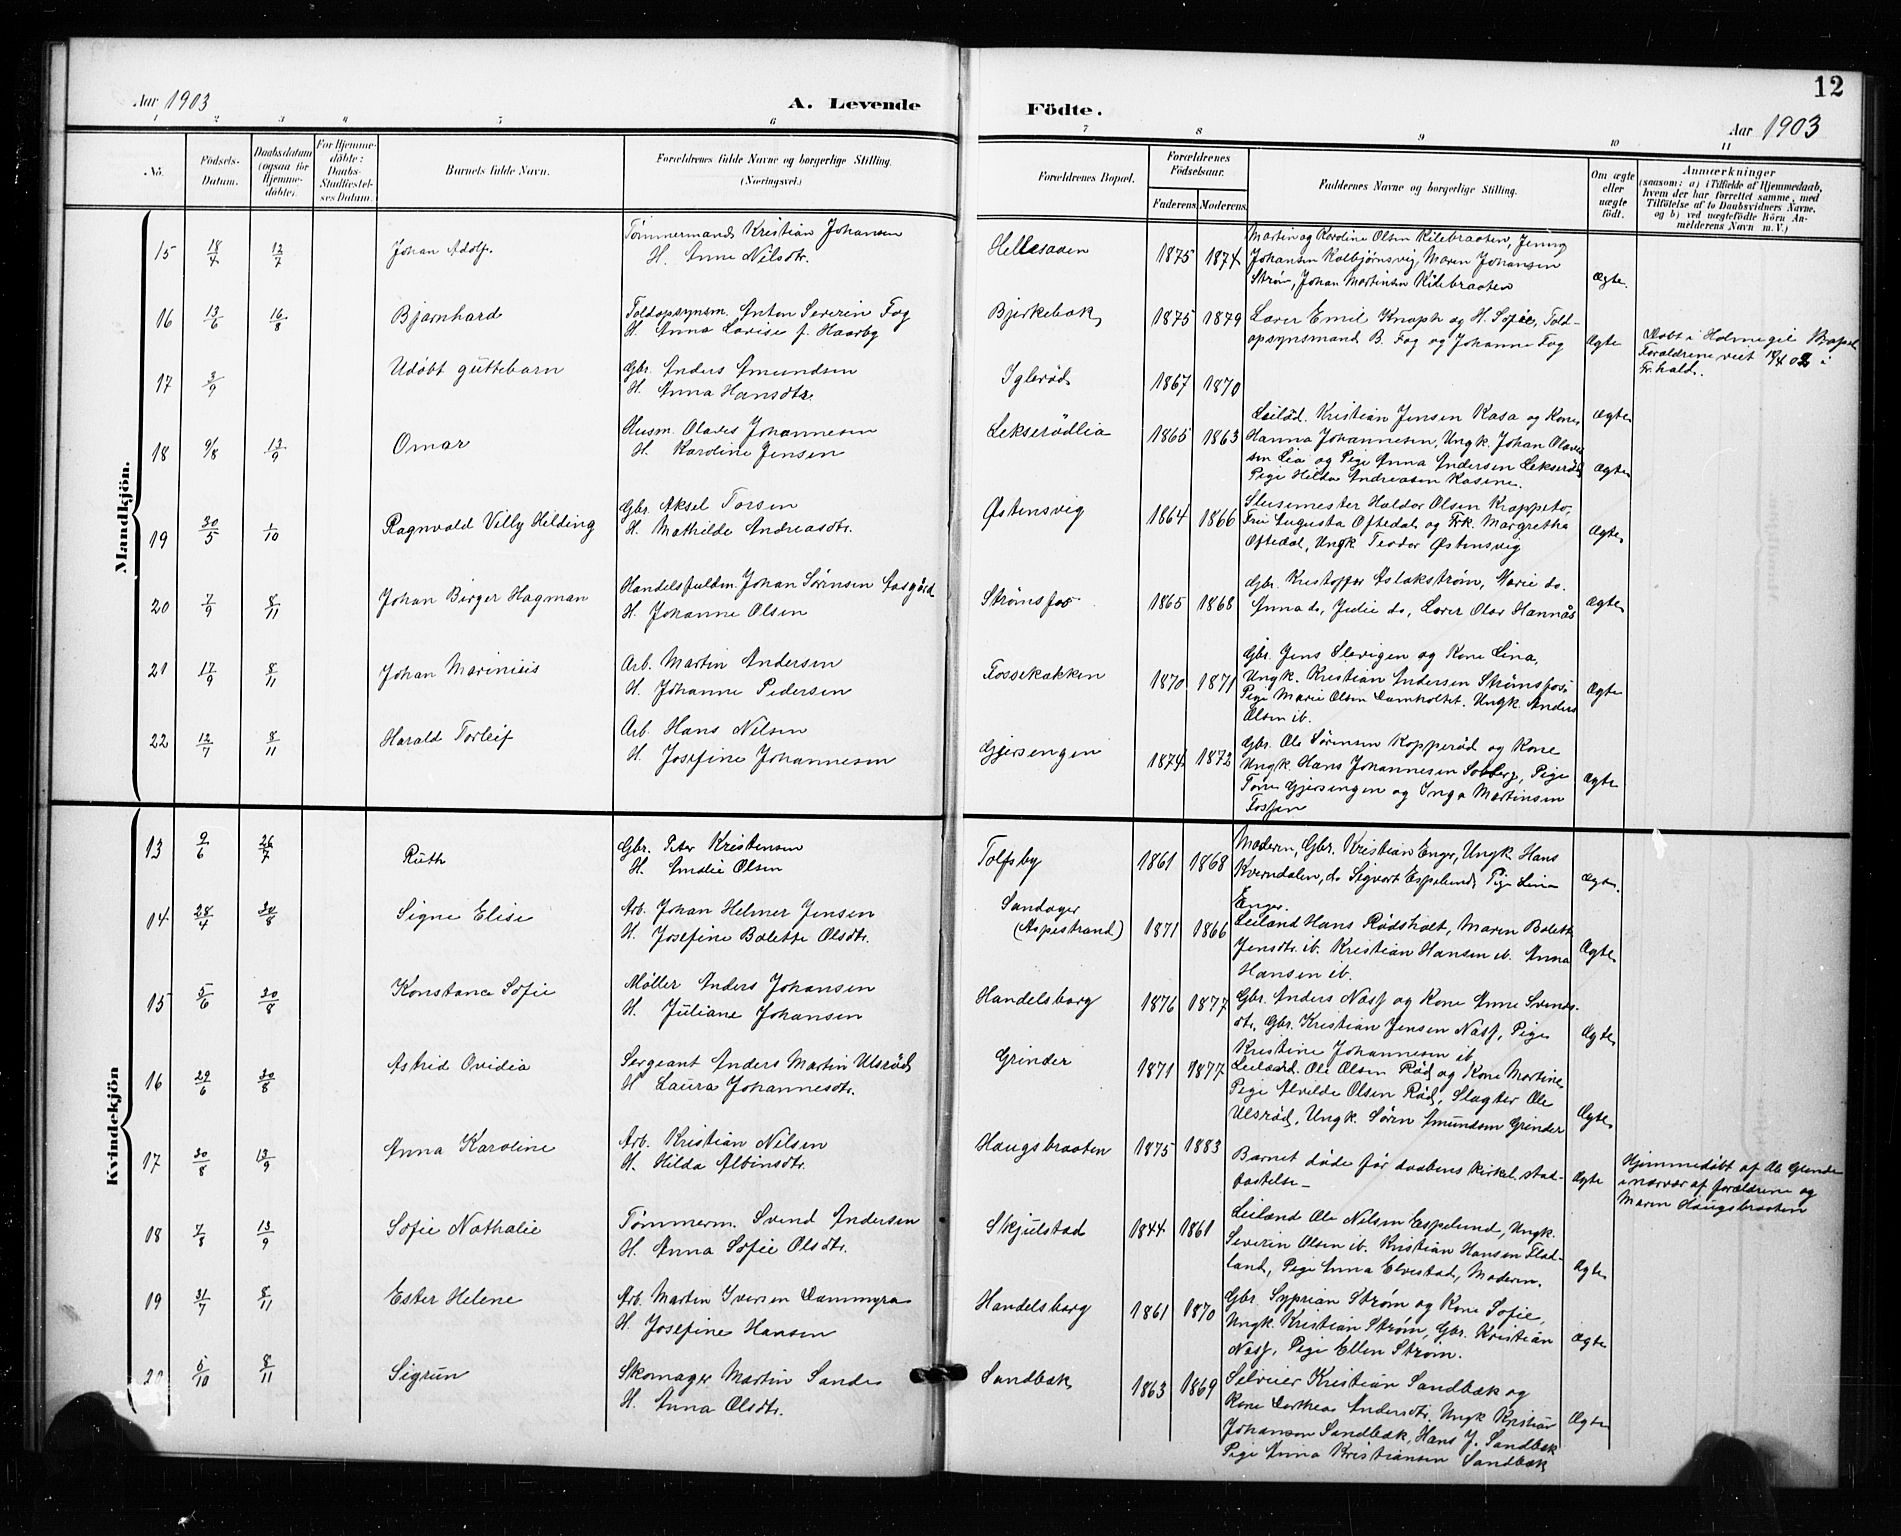 Aar 1903
A. Levende
Födte.
12
Aar 1903
1 2 3 4 5 6
7 8 9 10 11
No.
Födsels-
Datum.
Daabsdatum
(ogsaa for
Hjemme-
döbte).
For Hjemme-
döbte:
Daabs-
Stadfæstel-
ses Datum.
Barnets fulde Navn.
Forældrenes fulde Navne og borgerlige Stilling.
(Næringsvei.)
Forældrenes Bopæl.
Forældrenes
Födselsaar.
Faderens.
Moderens.
Faddernes Navne og borgerlige Stilling.
Om ægte
eller
uægte
födt.
Anmærkninger
(saasom: a) i Tilfælde af Hjemmedaab,
hvem der har forrettet samme, med
Tilföielse af to Daabsvidners Navne,
og b) ved uægtefödte Börn An-
melderens Navn m. V.)
Mandkjön.
15 18/4 12/7 Johan Adolf.
Tømmermand Kristian Johansen
H. Anne Nilsdtr.
Hellesaaen 1875 1874
Martin og Karoline Olsen Kilebraaten, Jenny
Johansen Kolbjørnsvig, Maren Johansen
Strøm, Johan Martinsen Kilebraaten
Ægte.
16 13/6 16/8 Bjarnhard
Toldopsynsm. Anton Severin Fog
H. Anna Lovise f. Haarby
Bjerkebæk 1875 1879
Lærer Emil Knoph og H. Sofie, Told-
opsynsmand B. Fog og Johanne Fog
Ægte
Døbt i Holmegil Kapel
Forældrene viet 02 i
Fr.hald.
17 3/9 Udøbt guttebarn
Gbr. Anders Amundsen
H. Anna Hansdtr.
Iglerød 1867 1870
Ægte
18 9/8 13/9 Omar
Husm. Olaves Johannesen
H. Karoline Jensen
Lekserødlia 1865 1863
Leilød. Kristian Jensen Kasa og Kone
Hanna Johannesen, Ungk. Johan Olave
sen Lia og Pige Anna Andersen Lekserød
Pige Hilda Andreasen Kasene.
Ægte
19 30/5 1/10 Ragnvald Villy Hilding
Gbr. Aksel Torsen
H. Mathilde Andreasdtr.
Østensvig 1864 1866
Slusemester Haldor Olsen Krappeto,
Fru Augusta Oftedal og Frk. Margretha
Oftedal, Ungk Teodor Østensvig
Ægte
20 7/9 8/11 Johan Birger Hagman
Handelsfuldm. Johan Sørensen Aasgård
H. Johanne Olsen
Strømsfos 1865 1868
Gbr. Kristoffer Aslakstrøm, Marie do.
Anna do, Julie do, Lærer Olav Hannås
Ægte
21 17/9 8/11 Johan Marinius
Arb. Martin Andersen
H. Johanne Pedersen
Fossekakken 1870 1871
Gbr. Jens Slevigen og Kone Lina,
Ungk. Kristian Andersen Strømsfos
Pige Marie Olsen Damholtet. Ungk. Anders
Olsen ib.
Ægte
22 12/7 8/11 Harald Torleif
Arb. Hans Nilsen
H. Josefine Johannesen
Gjersengen 1874 1872
Gbr. Ole Sørensen Kopperød og Kone
Ungk. Hans Johannesen Solberg, Pige
Tone Gjersengen og Inga Martinsen
Fossen
Ægte
Kvindekjön
13 9/6 26/7 Ruth
Gbr. Peter Kristensen
H. Amalie Olsen
Tolfsby 1861 1868
Moderen, Gbr. Kristian Enger, Ungk Hans
Kverndalen, do Sigvart Espelund, Pige Lina
Enger.
Ægte.
14 28/4 30/8 Signe Elise
Arb. Johan Helmer Jensen
H. Josefine Bolette Olsdtr.
Sandager
(Aspestrand) 1871 1866
Leiland Hans Rødsholt, Maren Bolette
Jensdtr. ib. Kristian Hansen ib. Anna
Hansen ib.
Ægte
15 5/6 30/8 Konstance Sofie
Møller Anders Johansen
H. Juliane Johansen
Handelsborg 1876 1877
Gbr. Anders Næss og Kone Anne Svends-
dtr, Gbr. Kristian Jensen Næss, Pige
Kristine Johannesen ib.
Ægte
16 29/6 30/8 Astrid Ovidia
Sergeant Anders Martin Ulsrød
H Laura Johannesdtr.
Grinder 1871 1877
Leilænd. Ole Olsen Rød og Kone Martine
Pige Alvilde Olsen Rød, Slagter Ole
Ulsrød, Ungk. Søren Amundsen Grinder
Ægte
17 30/8 13/9 Anna Karoline
Arb. Kristian Nilsen
H. Hilda Albinsdtr.
Haugsbraaten 1875 1883
Barnet døde før daabens kirkel. stad-
fæstelse_
Ægte
Hjemmedøbt af Ole Grinde
i nærvær af forældrene og
Maren Haugsbraaten
18 7/8 13/9 Sofie Nathalie
Tømmerm. Svend Andersen
H. Anna Sofie Olsdtr.
Skjulstad 1844 1861
Leilænd Ole Nilsen Espelund, Ungk.
Severin Olsen ib. Kristian Hansen Flad-
land, Pige Anna Elvestad, Moderen.
Ægte
19 31/7 8/11 Ester Helene
Arb. Martin Iversen Dammyra
H. Josefine Hansen
Handelsborg 1861 1870
Gbr. Syprian Strøm og Kone Sofie,
Ungk. Kristian Strøm, Gbr. Kristian
Næss, Pige Ellen Strøm.
Ægte
20 6/10 8/11 Sigrun
Skomager Martin Sande
H. Anna Olsdtr.
Sandbæk 1863 1869
Selveier Kristian Sandbæk og
Kone Dorthea Andersdtr. Ungk Kristian
Johansen Sandbæk, Hans J. Sandbæk
Pige Anna Kristiansen Sandbæk
Ægte